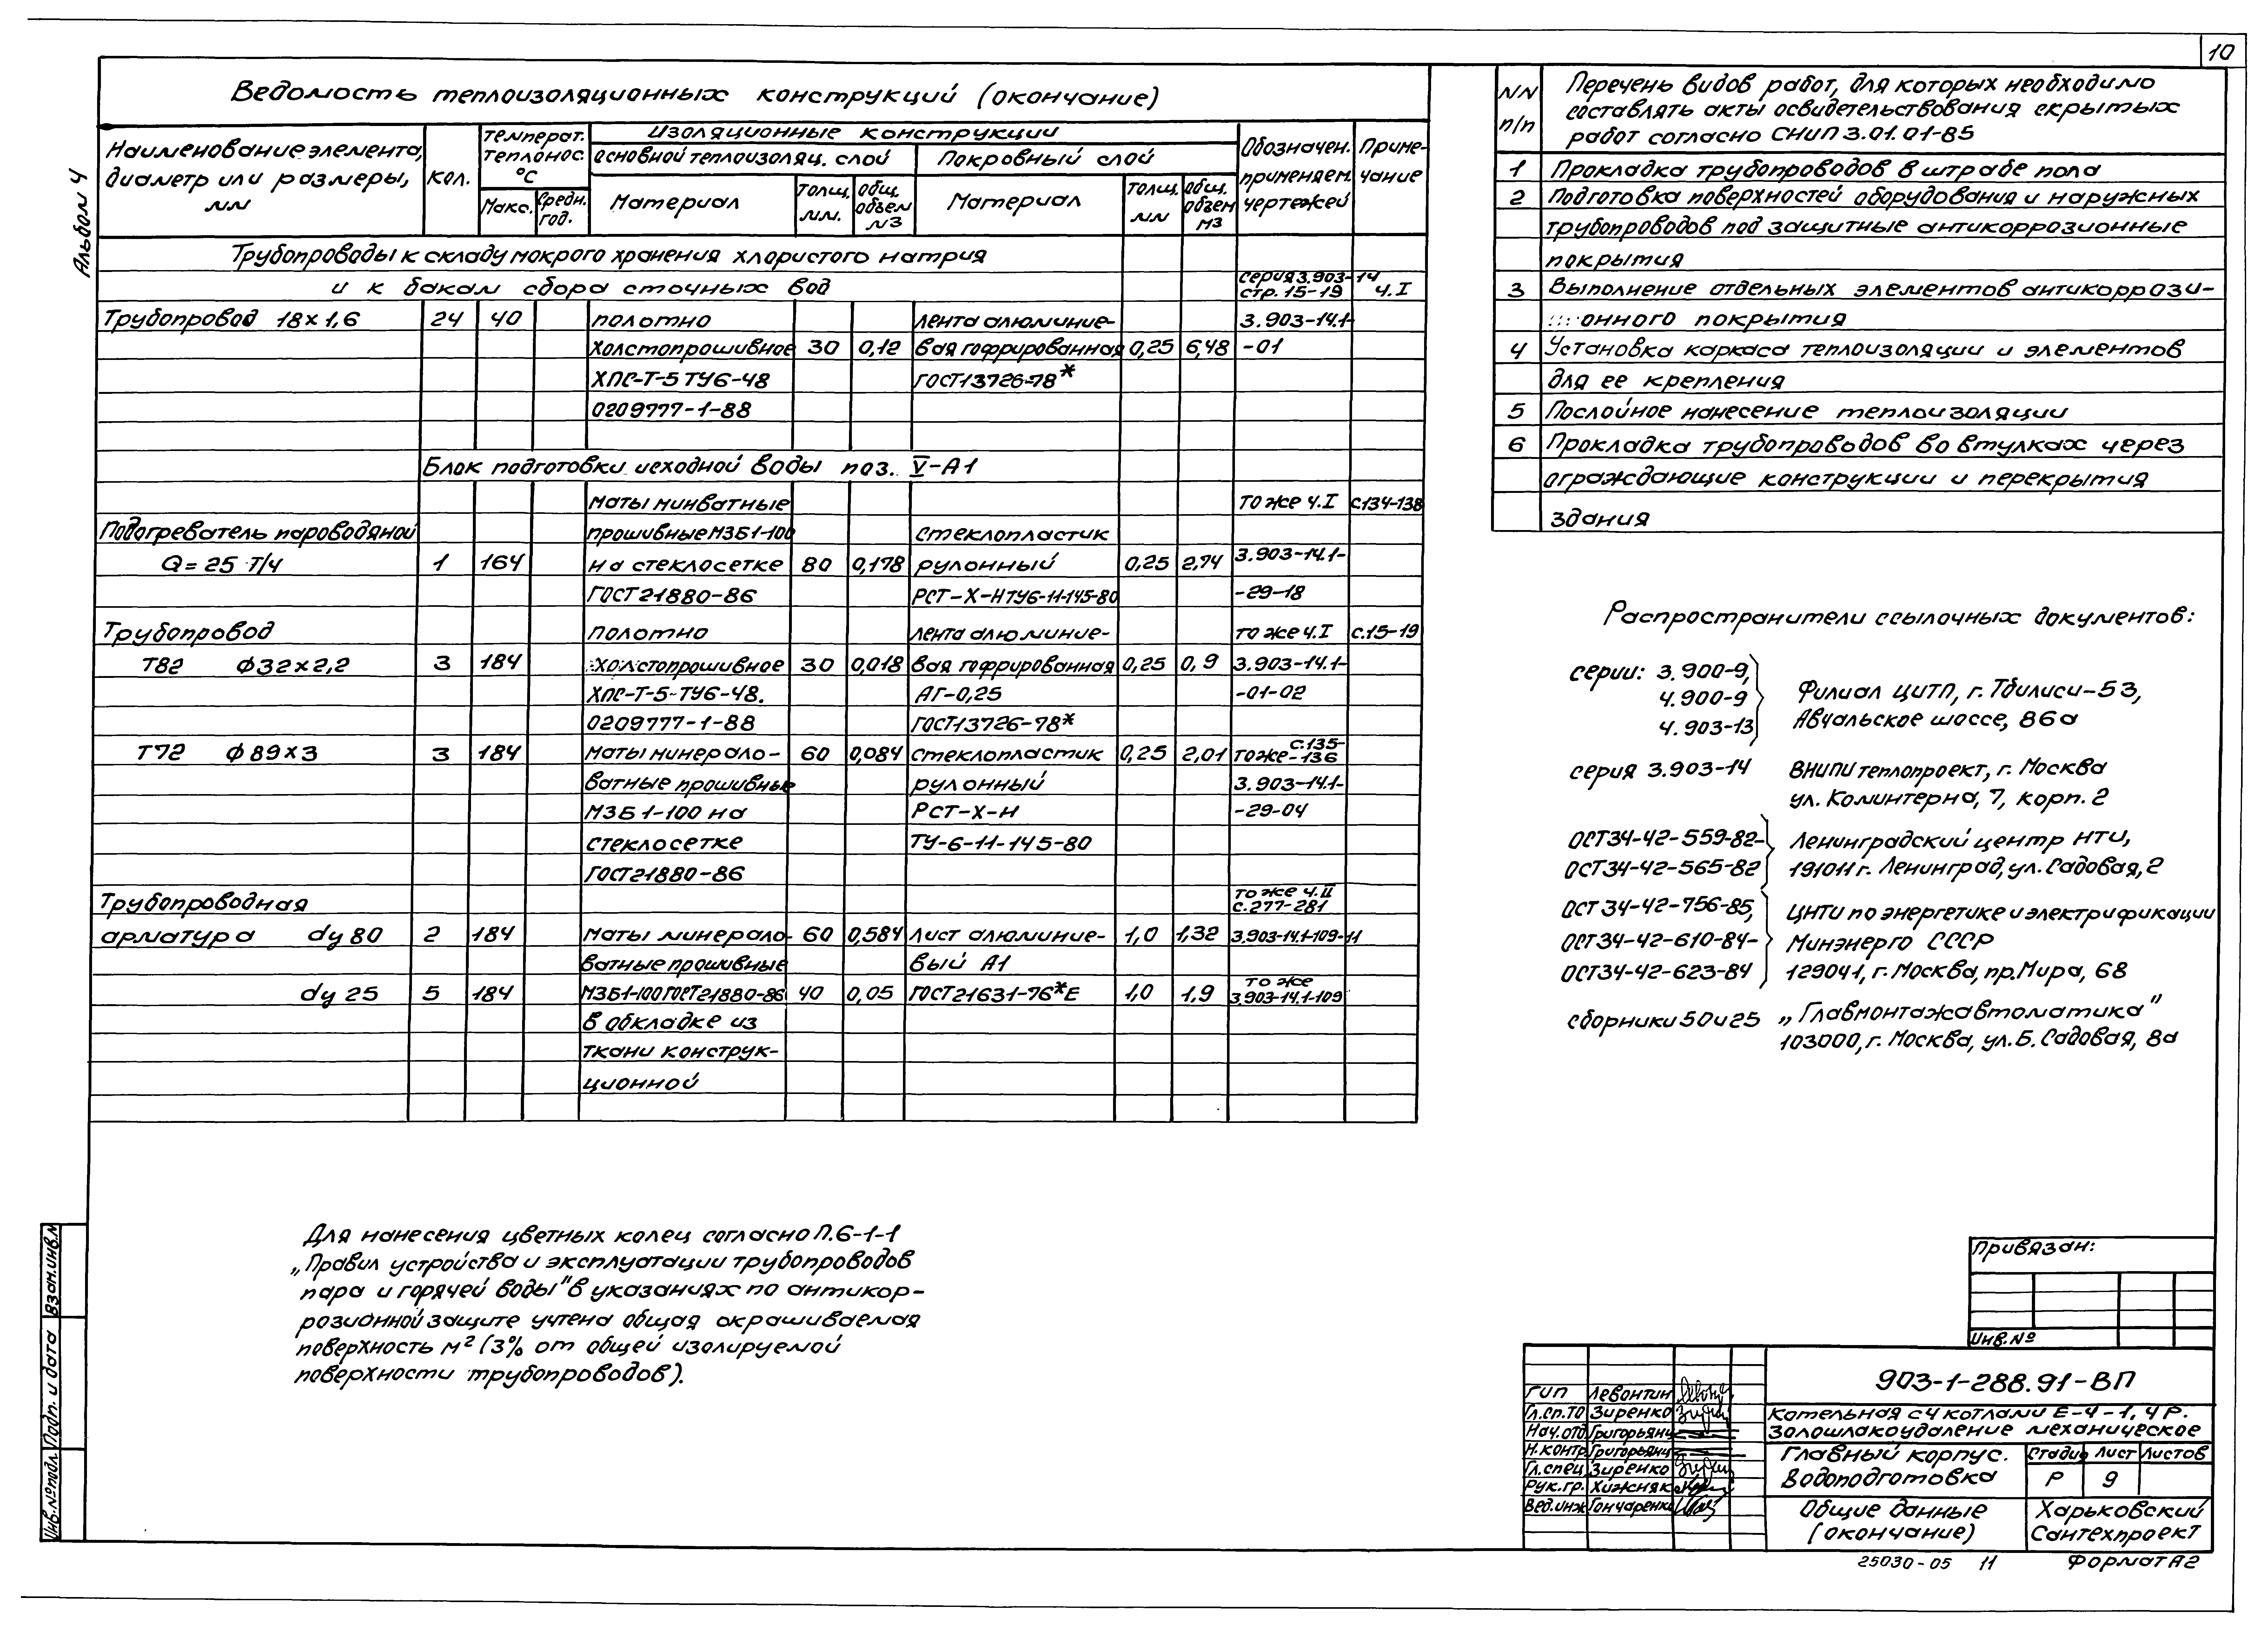 10
Альбом 4
Ведомость теплоизоляционных конструкций (окончание)
Наименование элемента, диаметр или размеры, мм
Кол.
Температ. теплонос. °С
Макс.
Средн. год.
Изоляционные конструкции
Основной теплоизоляц. слой
Покровный слой
Материал
Толщ. мм.
Общ. объем м3
Материал
Толщ. мм
Общ. объем м3
Обозначен. применяем. чертежей
Примечание
Трубопроводы к складу мокрого хранения хлористого натрия
и к бакам сбора сточных вод
серия 3.903-14
стр. 15-19 ч.I
Трубопровод 18×1,6 24 40 полотно лента алюминие- 3.903-14.1-
холстопрошивное 30 0,12 вая гофрированная 0,25 6,48 -01
ХПС-Т-5 ТУ6-48 ГОСТ13726-78*
0209777-1-88
Блок подготовки исходной воды поз. V-А1
маты минватные то же ч.I с.134-138
Подогреватель пароводяной прошивные М3Б1-100 стеклопластик
Q=25 Т/ч 1 164 на стеклосетке 80 0,178 рулонный 0,25 2,74 3.903-14.1-
ГОСТ21880-86 РСТ-Х-НТУ6-11-145-80 -29-18
Трубопровод полотно лента алюминие- то же ч.I с.15-19
Т82 Ф32×2,2 3 184 холстопрошивное 30 0,018 вая гофрированная 0,25 0,9 3.903-14.1-
ХПС-Т-5-ТУ6-48. АГ-0,25 -01-02
0209777-1-88 ГОСТ13726-78*
Т72 Ф89×3 3 184 маты минерало- 60 0,084 стеклопластик 0,25 2,01 то же с.135-136
ватные прошивные рулонный 3.903-14.1-
М3Б1-100 на РСТ-Х-Н -29-04
стеклосетке ТУ-6-11-145-80
ГОСТ21880-86
Трубопроводная то же ч.II с.277-281
арматура dy 80 2 184 маты минерало- 60 0,584 лист алюминие- 1,0 1,32 3.903-14.1-109-11
ватные прошивные вый А1
dy 25 5 184 М3Б1-100 ГОСТ21880-86 40 0,05 ГОСТ21631-76*Е 1,0 1,9 то же 3.903-14.1-109
в обкладке из
ткани конструк-
ционной
Для нанесения цветных колец согласно П.6-1-1
„Правил устройства и эксплуатации трубопроводов
пара и горячей воды" в указаниях по антикор-
розионной защите учтена общая окрашиваемая
поверхность м² (3% от общей изолируемой
поверхности трубопроводов).
NN п/п
Перечень видов работ, для которых необходимо
составлять акты освидетельствования скрытых
работ согласно СНИП 3.01.01-85
1 Прокладка трубопроводов в штрабе пола
2 Подготовка поверхностей оборудования и наружных
трубопроводов под защитные антикоррозионные
покрытия
3 Выполнение отдельных элементов антикоррози-
онного покрытия
4 Установка каркаса теплоизоляции и элементов
для ее крепления
5 Послойное нанесение теплоизоляции
6 Прокладка трубопроводов во втулках через
ограждающие конструкции и перекрытия
здания
Распространители ссылочных документов:
серии: 3.900-9,
4.900-9
4.903-13
Филиал ЦИТП, г. Тбилиси-53,
Авчальское шоссе, 86а
серия 3.903-14 ВНИПИтеплопроект, г. Москва
ул. Коминтерна, 7, корп. 2
ОСТ34-42-559-82-
ОСТ34-42-565-82
Ленинградский центр НТИ,
191011 г. Ленинград, ул. Садовая, 2
ОСТ 34-42-756-85,
ОСТ34-42-610-84-
ОСТ34-42-623-84
ЦНТИ по энергетике и электрификации
Минэнерго СССР
129041, г. Москва, пр. Мира, 68
сборники 50 и 25 „Главмонтажавтоматика"
103000, г. Москва, ул. Б. Садовая, 8а
Привязан:
Инв.№
ГИП Левонтин
Гл.сп.ТО Зиренко
Нач.отд Григорьянц
Н.контр Григорьянц
Гл.спец Зиренко
Рук.гр. Хижняк
Вед.инж Гончаренко
903-1-288.91-ВП
Котельная с 4 котлами Е-4-1,4Р.
Золошлакоудаление механическое
Главный корпус.
Водоподготовка
Стадия Лист Листов
Р 9
Общие данные
(окончание)
Харьковский
Сантехпроект
25030-05 11 Формат А2
Взам.инв.№
Подп. и дата
Инв.№подл.